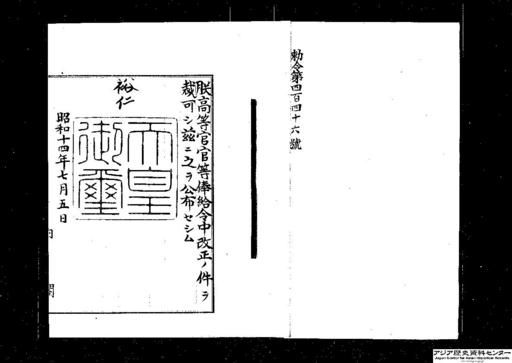 勅令第四百四十六號
朕高等官官等俸給令中改正ノ件ヲ
裁可シ茲ニ之ヲ公布セシム
裕仁
天皇
御璽
昭和十四年七月五日
内
閣
アジア歴史資料センター
Japan Center for Asian Historical Records